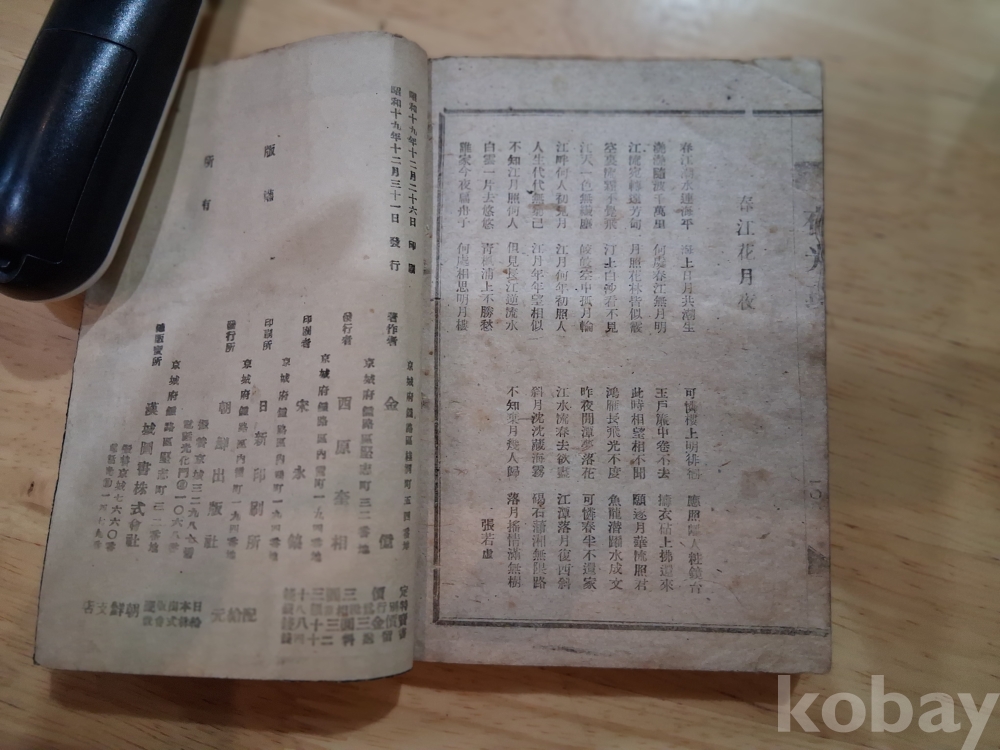 春江花月夜
春江潮水連海平 海上明月共潮生
灩灩隨波千萬里 何處春江無月明
江流宛轉遶芳甸 月照花林皆似霰
空裏流霜不覺飛 汀上白沙看不見
江天一色無纖塵 皎皎空中孤月輪
江畔何人初見月 江月何年初照人
人生代代無窮已 江月年年望相似
不知江月照何人 但見長江送流水
白雲一片去悠悠 青楓浦上不勝愁
誰家今夜扁舟子 何處相思明月樓
可憐樓上月徘徊 應照離人粧鏡台
玉戶簾中卷不去 擣衣砧上拂還來
此時相望相不聞 願逐月華流照君
鴻雁長飛光不度 魚龍潛躍水成文
昨夜閒潭夢落花 可憐春半不還家
江水流春去欲盡 江潭落月復西斜
斜月沈沈藏海霧 碣石瀟湘無限路
不知乘月幾人歸 落月搖情滿無樹
張若虛
昭和十九年十二月二十六日 印刷
昭和十九年十二月三十一日 發行
版權
所有
京城府鍾路區
著作者 金億
京城府鍾路區堅志町三二番地
發行者 西原奎相
京城府鍾路區內需町一九四番地
印刷者 宋永鎬
京城府鍾路區內需町一九四番地
印刷所 日新印刷所
京城府鍾路區堅志町三二番地
發行所 朝鮮出版社
電話光化門
振替京城
漢城圖書株式會社
振替京城七六六〇番
配給元
朝鮮支店
kobay